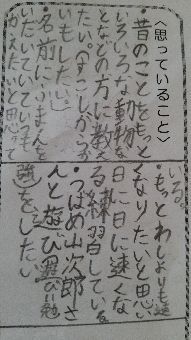 〈思っていること〉
・昔のことをもっと
いろいろな動物な
となどの方に教え
たい。(すこしからか
いもしたい)
・名前にごまんを
いだいていていつも
かえたいと思って
いる。
・もっとわしよりも速
くなりたいと思い
日に日に速くな
る練習している。
・つばめ山次郎さ
んと遊び遊び勉
強をしたい